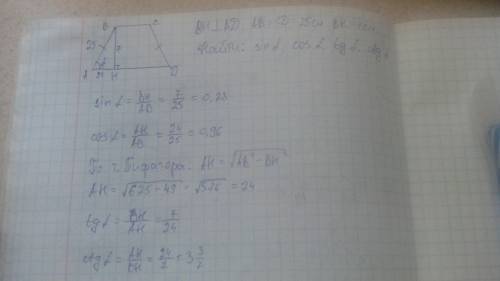 B C
25 7
α
A 24 H D
BH⊥AD. AB=CD=25см BH=7см
Найти: sin α, cos α, tg α, ctg α
sin α = BH/AB = 7/25 = 0,28
cos α = AH/AB = 24/25 = 0,96
По т. Пифагора: AH = √AB² - BH²
AH = √625-49 = √576 = 24
tg α = BH/AH = 7/24
ctg α = AH/BH = 24/7 = 3 3/7